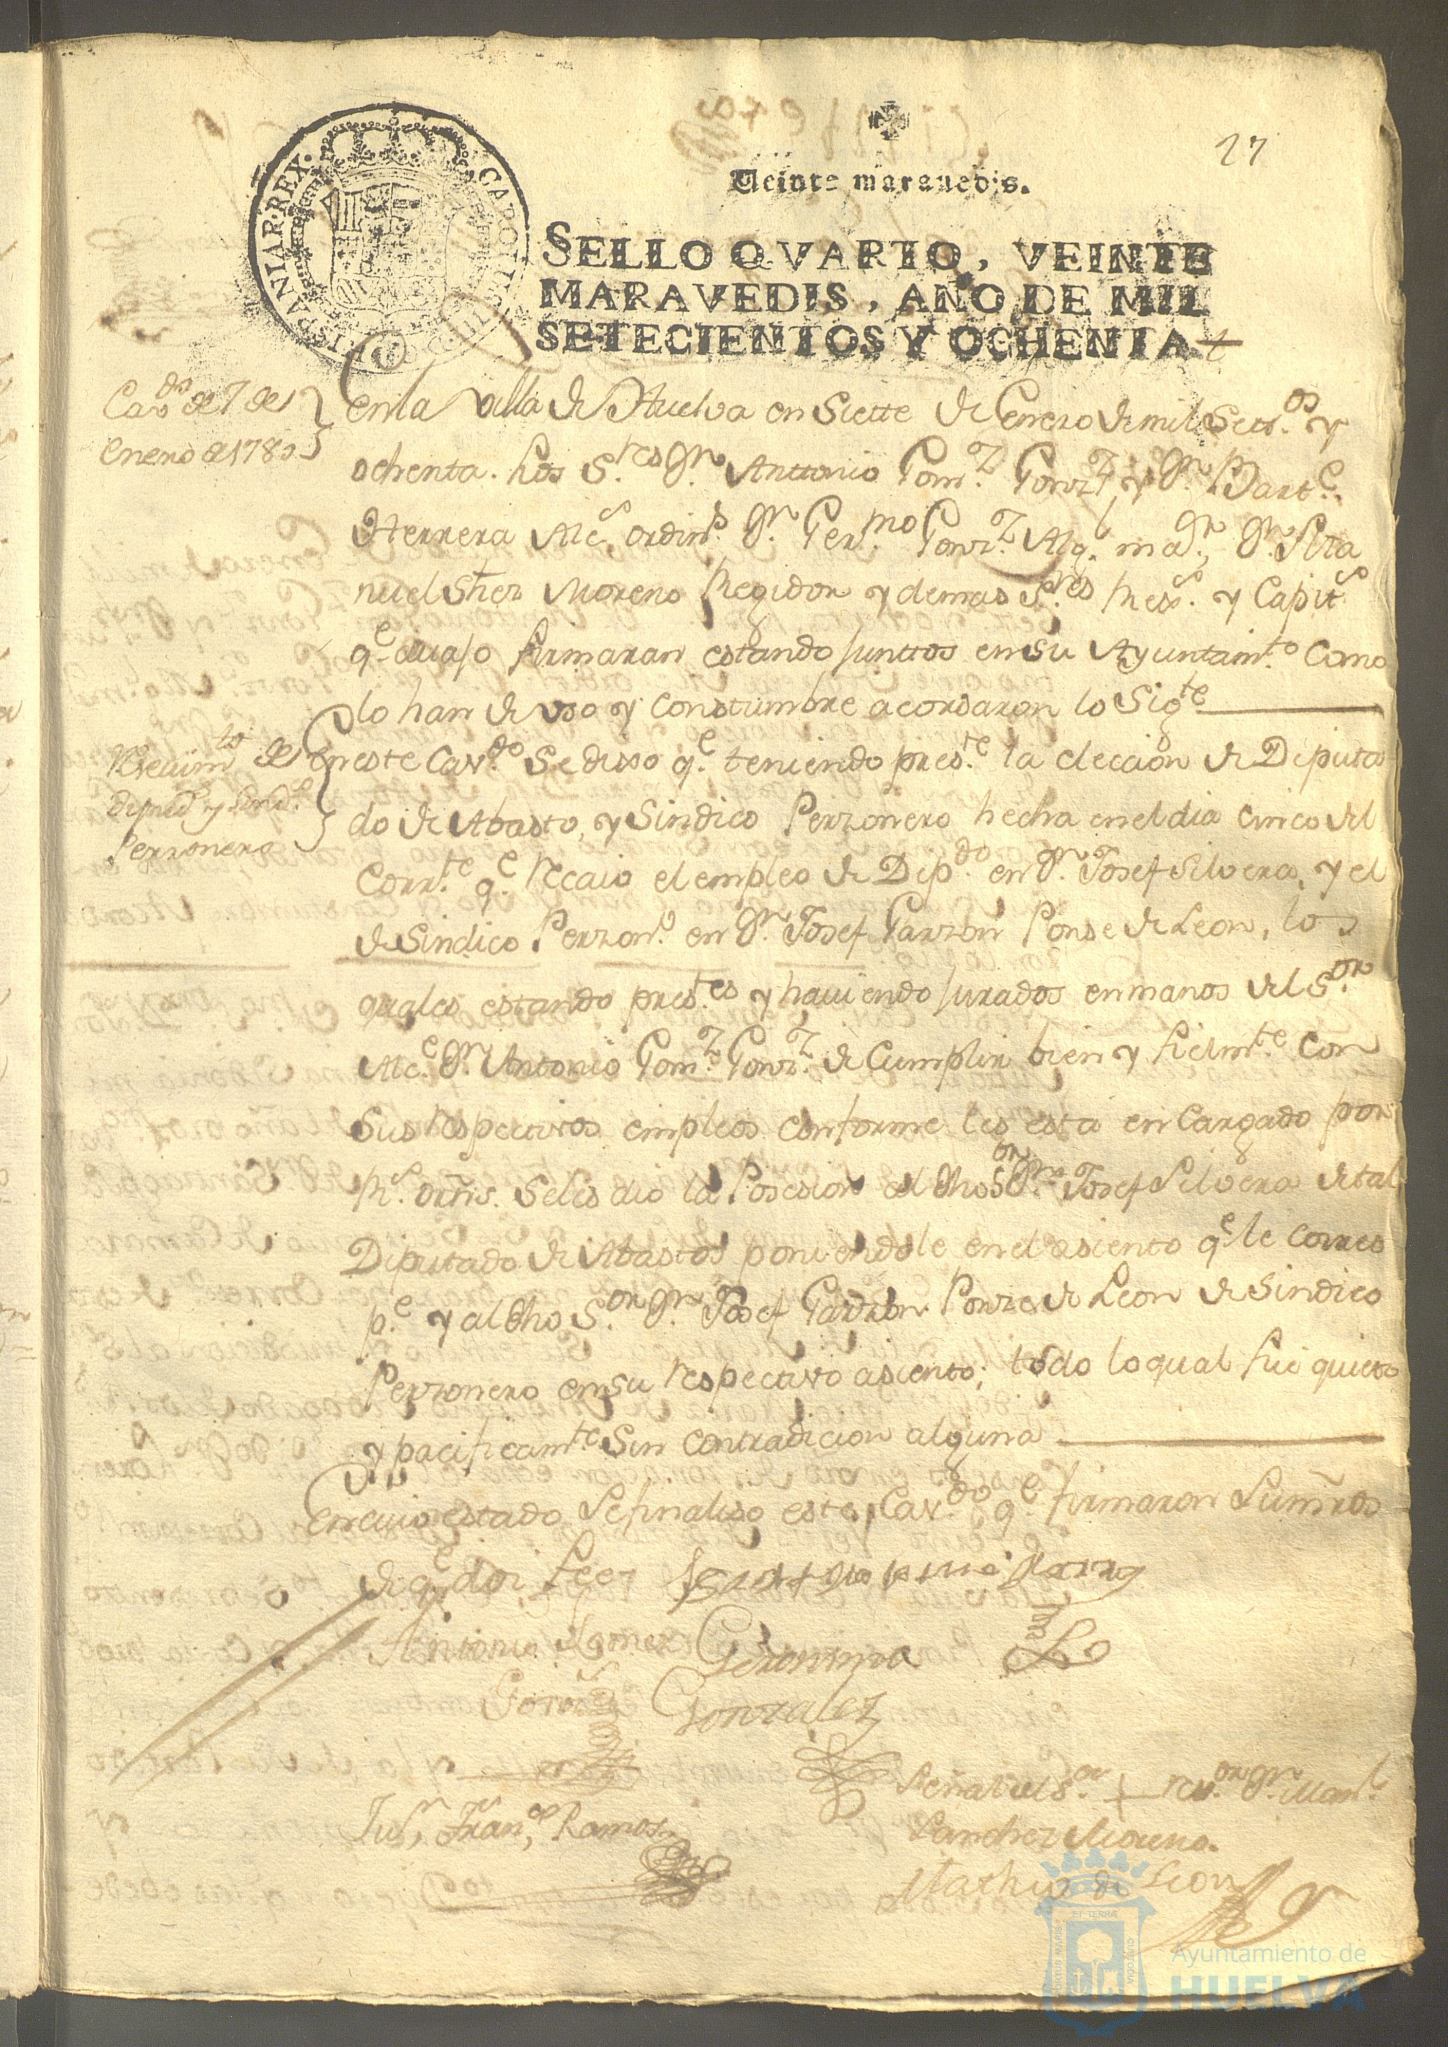 27
Veinte maravedis.
SELLO QVARTO, VEINTE
MARAVEDIS, AÑO DE MIL
SETECIENTOS Y OCHENTA
HISPANIAR. REX. CAROLUS III D. G.
Cav.do de 7 de
Enero de 1780
En la Villa de Huelva en Siette de Henero de mil Sett.os y
ochenta. Los S.res Dn. Anttonio Gom.z Gonz.z, y Dn. Bart.e
Herrera Alc.s ordin.s Dn. Ger.mo Gonz.z Alg.l mar, Dn. Ma
nuel Shez Moreno Regidor y demas S.res Rex.s y Capit.s
q.e auajo firmaran estando Junttos en su Ayuntam.to Como
lo han de uso y Constumbre acordaron lo Sig.te
Reciuim.to de
diputd.o y Sindi.o
Perzonero
En este Cav.do Se dixo q.e teniendo pres.te la eleccion de Diputa
do de Abasto, y Sindico Perzonero hecha en el dia Cinco del
Corr.te q.e recaio el empleo de Dip.do en Dn. Josef Silvera, y el
de Sindico Perzon.o en Dn. Josef Garzon Ponse de Leon, los
quales estando pres.tes y haviendo Jurados en manos del S.or
Alc.e Dn. Antonio Gom.z Gonz.z de Cumplir bien y fielm.te Con
Sus respectivos empleos conforme les está en Cargado por
R.s orñs. Se les dio la Posesion al dho S.or Dn. Josef Silvera de tal
Diputado de Abastos poniendole en el asiento q.e le Corres
p.e y al dho S.or Dn. Josef Garzon Ponze de Leon de Sindico
Perzonero en su respectivo asiento; todo lo qual fue quieto
y pacificam.te Sin Contradicion alguna
En cuio estado Se finaliso este Cav.do q.e firmaron Sus mrds
de q.e doi fee
Antonio Gomez
Geronimo
Gonzalez
Señal del S.or + rex.or Dn. Man.l
Sanchez Moreno.
Ju.n Fran.co Ramos
Mathias de Leon
Ayuntamiento de
HUELVA